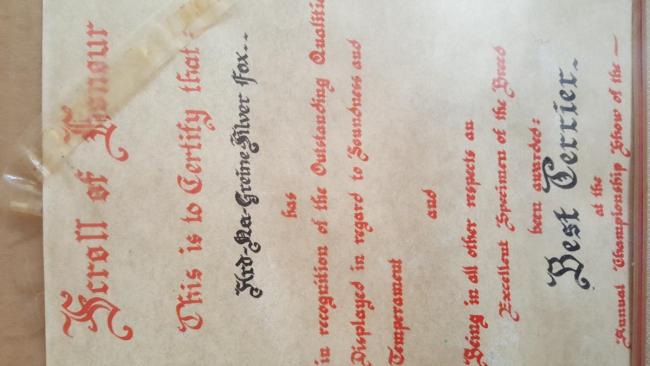 Scroll of Honour
This is to Certify that:
Ard-Na-Greine-Silver Fox..
has
in recognition of the Outstanding Qualities
Displayed in regard to Soundness and
Temperament
and
Being in all other respects an
Excellent Specimen of the Breed
been awarded:
Best Terrier.
at the
Annual Championship Show of the —